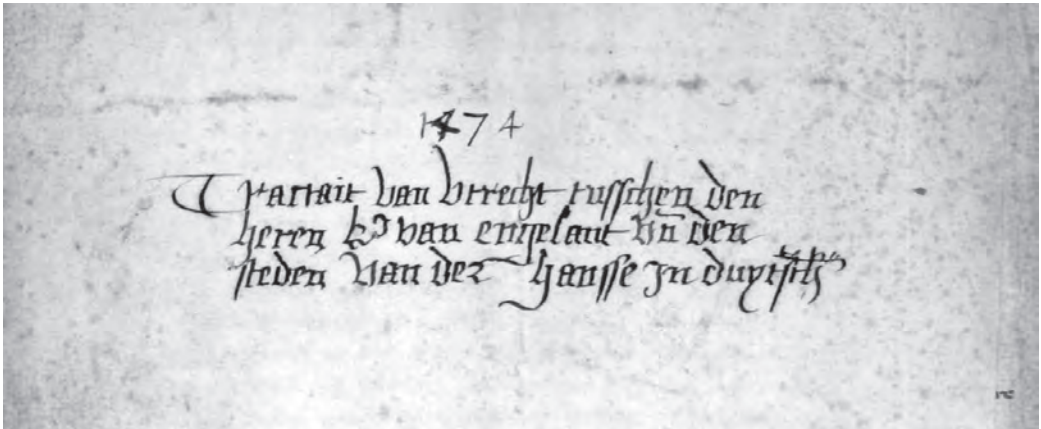 1474
Tractait van vtrecht tusschen den
heren k van engelant vn̄ den
steden van der hansse in duytsch